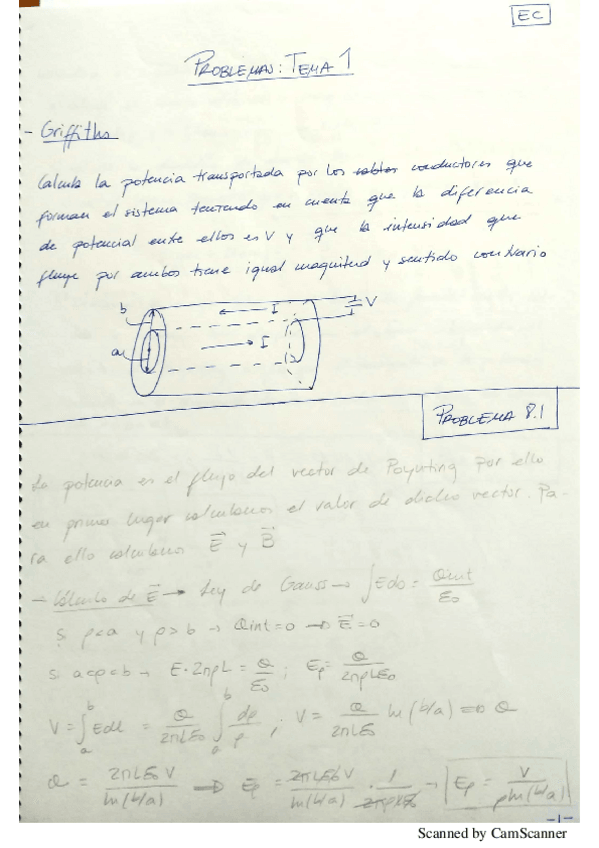 EC
PROBLEMAS: TEMA 1
- Griffiths
Calcula la potencia transportada por los cables conductores que
forman el sistema teniendo en cuenta que la diferencia
de potencial entre ellos es V y que la intensidad que
fluye por ambos tiene igual magnitud y sentido contrario
b
a
I
I
V
PROBLEMA 8.1
La potencia es el flujo del vector de Poynting por ello
en primer lugar calculamos el valor de dicho vector. Pa-
ra ello calculamos E⃗ y B⃗
- Cálculo de E⃗ → Ley de Gauss → ∫Eds = Qint/ε0
Si ρ<a y ρ>b → Qint=0 → E⃗=0
Si a<ρ<b → E·2πρL = Q/ε0 ; Eρ = Q/2πρLε0
V = ∫ab Edl = Q/2πLε0 ∫ab dρ/ρ ; V = Q/2πLε0 ln(b/a) ⇒ Q
Q = 2πLε0V/ln(b/a) → Eρ = 2πLε0V/ln(b/a) · 1/2πρLε0 → Eρ = V/ρln(b/a)
-1-
Scanned by CamScanner